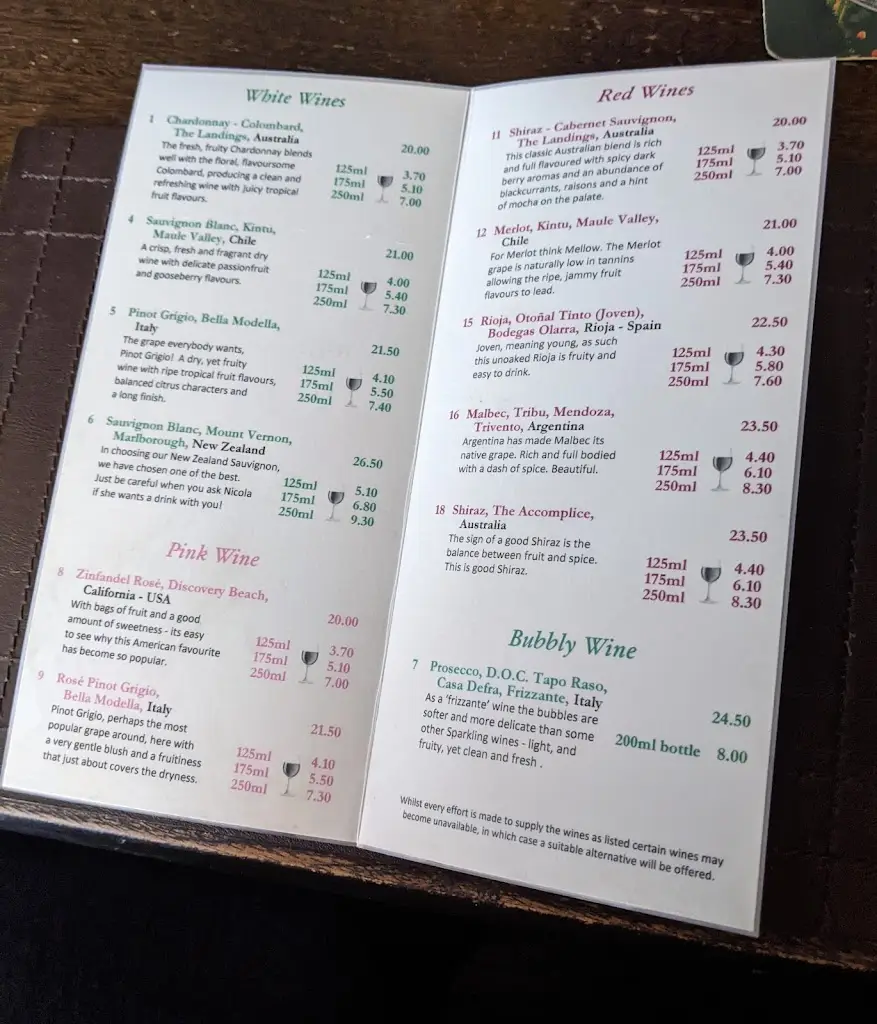 White Wines
1 Chardonnay - Colombard,
The Landings, Australia
20.00
The fresh, fruity Chardonnay blends
well with the floral, flavoursome
Colombard, producing a clean and
refreshing wine with juicy tropical
fruit flavours.
125ml 3.70
175ml 5.10
250ml 7.00
4 Sauvignon Blanc, Kintu,
Maule Valley, Chile
21.00
A crisp, fresh and fragrant dry
wine with delicate passionfruit
and gooseberry flavours.
125ml 4.00
175ml 5.40
250ml 7.30
5 Pinot Grigio, Bella Modella,
Italy
21.50
The grape everybody wants,
Pinot Grigio! A dry, yet fruity
wine with ripe tropical fruit flavours,
balanced citrus characters and
a long finish.
125ml 4.10
175ml 5.50
250ml 7.40
6 Sauvignon Blanc, Mount Vernon,
Marlborough, New Zealand
26.50
In choosing our New Zealand Sauvignon,
we have chosen one of the best.
Just be careful when you ask Nicola
if she wants a drink with you!
125ml 5.10
175ml 6.80
250ml 9.30
Pink Wine
8 Zinfandel Rosé, Discovery Beach,
California - USA
20.00
With bags of fruit and a good
amount of sweetness - its easy
to see why this American favourite
has become so popular.
125ml 3.70
175ml 5.10
250ml 7.00
9 Rosé Pinot Grigio,
Bella Modella, Italy
21.50
Pinot Grigio, perhaps the most
popular grape around, here with
a very gentle blush and a fruitiness
that just about covers the dryness.
125ml 4.10
175ml 5.50
250ml 7.30
Red Wines
11 Shiraz - Cabernet Sauvignon,
The Landings, Australia
20.00
This classic Australian blend is rich
and full flavoured with spicy dark
berry aromas and an abundance of
blackcurrants, raisons and a hint
of mocha on the palate.
125ml 3.70
175ml 5.10
250ml 7.00
12 Merlot, Kintu, Maule Valley,
Chile
21.00
For Merlot think Mellow. The Merlot
grape is naturally low in tannins
allowing the ripe, jammy fruit
flavours to lead.
125ml 4.00
175ml 5.40
250ml 7.30
15 Rioja, Otoñal Tinto (Joven),
Bodegas Olarra, Rioja - Spain
22.50
Joven, meaning young, as such
this unoaked Rioja is fruity and
easy to drink.
125ml 4.30
175ml 5.80
250ml 7.60
16 Malbec, Tribu, Mendoza,
Trivento, Argentina
23.50
Argentina has made Malbec its
native grape. Rich and full bodied
with a dash of spice. Beautiful.
125ml 4.40
175ml 6.10
250ml 8.30
18 Shiraz, The Accomplice,
Australia
23.50
The sign of a good Shiraz is the
balance between fruit and spice.
This is good Shiraz.
125ml 4.40
175ml 6.10
250ml 8.30
Bubbly Wine
7 Prosecco, D.O.C. Tapo Raso,
Casa Defra, Frizzante, Italy
24.50
As a 'frizzante' wine the bubbles are
softer and more delicate than some
other Sparkling wines - light, and
fruity, yet clean and fresh .
200ml bottle 8.00
Whilst every effort is made to supply the wines as listed certain wines may
become unavailable, in which case a suitable alternative will be offered.